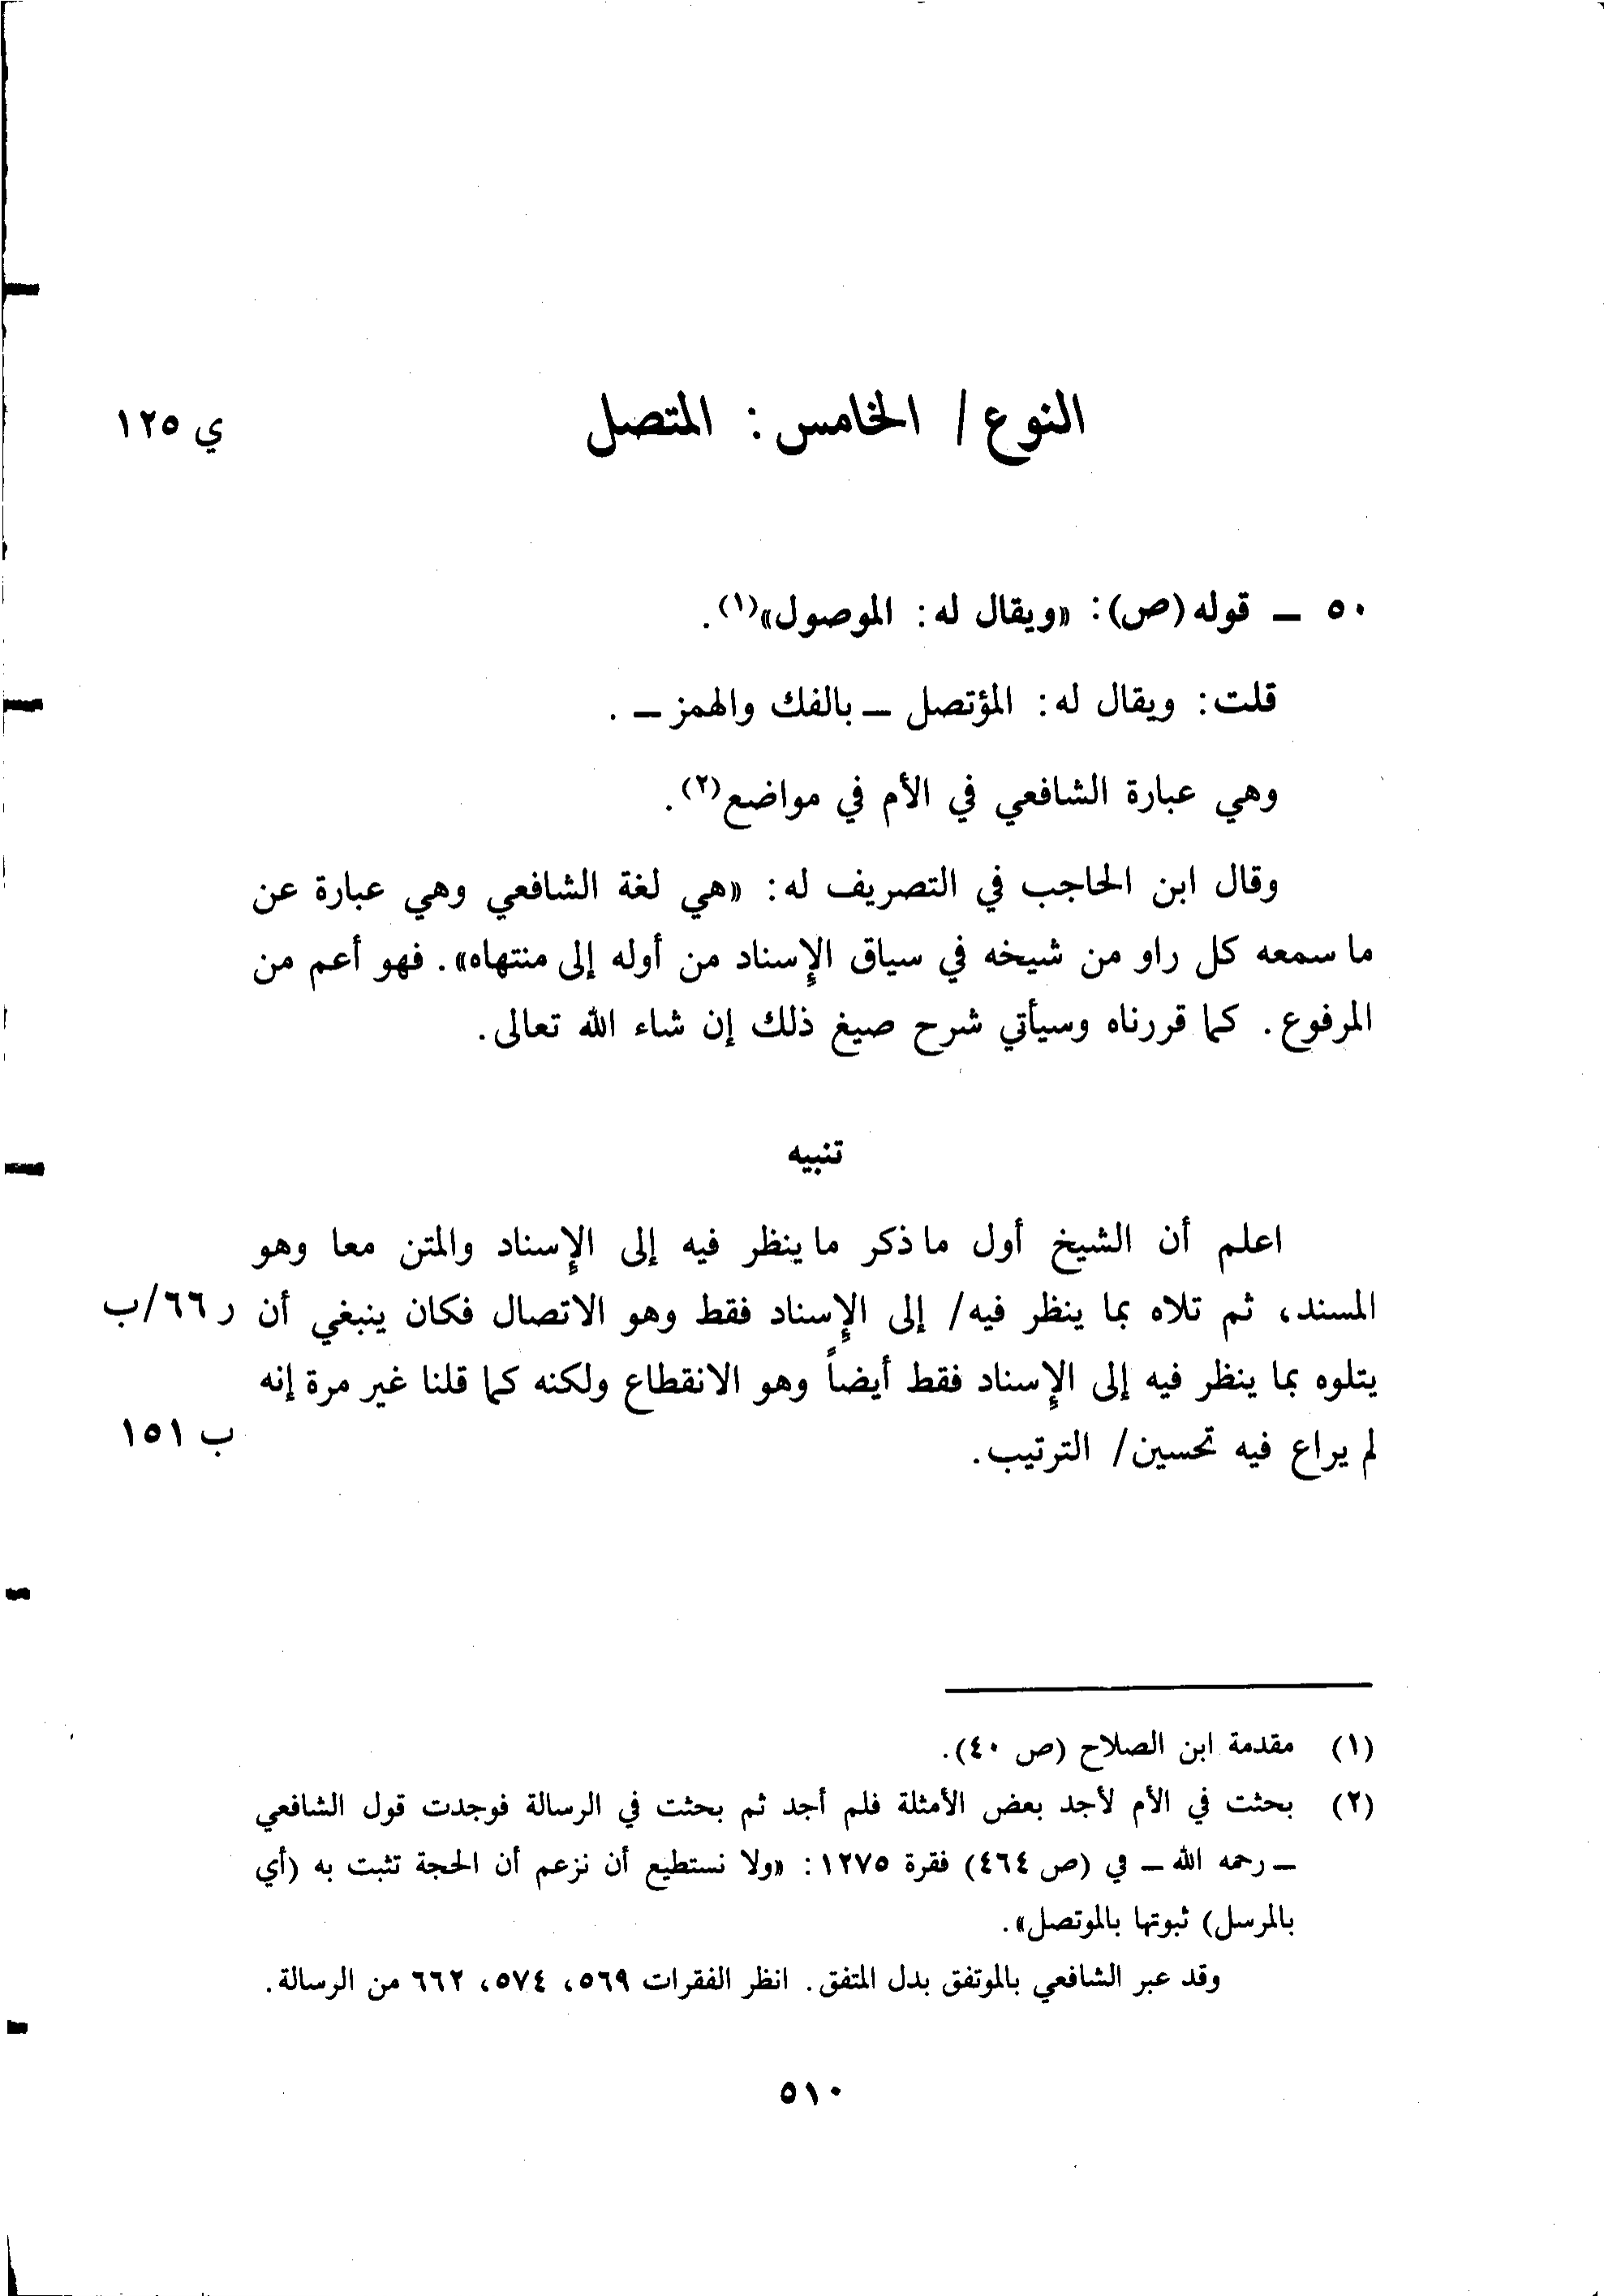 النوع/ الخامس: المتصل ي ١٢٥
٥٠ ــ قوله (ص): «ويقال له: الموصول»(١).
قلت: ويقال له: المؤتصل ــ بالفك والهمز ــ .
وهي عبارة الشافعي في الأم في مواضع(٢).
وقال ابن الحاجب في التصريف له: «هي لغة الشافعي وهي عبارة عن
ما سمعه كل راو من شيخه في سياق الإسناد من أوله إلى منتهاه». فهو أعم من
المرفوع. كما قررناه وسيأتي شرح صيغ ذلك إن شاء الله تعالى.
تنبيه
اعلم أن الشيخ أول ما ذكر ما ينظر فيه إلى الإسناد والمتن معا وهو
المسند، ثم تلاه بما ينظر فيه/ إلى الإسناد فقط وهو الاتصال فكان ينبغي أن ر ٦٦/ب
يتلوه بما ينظر فيه إلى الإسناد فقط أيضاً وهو الانقطاع ولكنه كما قلنا غير مرة إنه
لم يراع فيه تحسين/ الترتيب. ب ١٥١
(١) مقدمة ابن الصلاح (ص ٤٠).
(٢) بحثت في الأم لأجد بعض الأمثلة فلم أجد ثم بحثت في الرسالة فوجدت قول الشافعي
ــ رحمه الله ــ في (ص ٤٦٤) فقرة ١٢٧٥: «ولا نستطيع أن نزعم أن الحجة تثبت به (أي
بالمرسل) ثبوتها بالموتصل».
وقد عبر الشافعي بالموتفق بدل المتفق. انظر الفقرات ٥٦٩، ٥٧٤، ٦٦٢ من الرسالة.
٥١٠